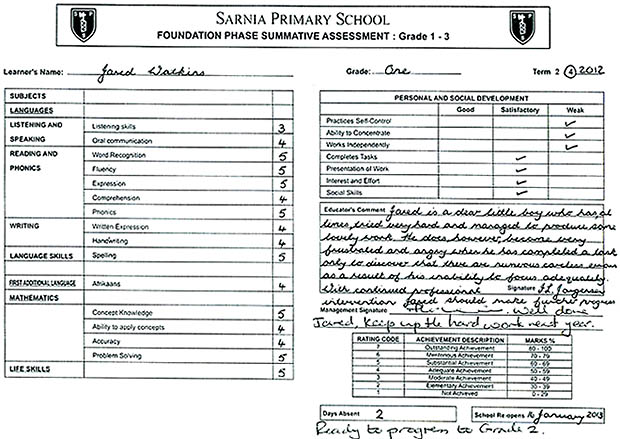 SARNIA PRIMARY SCHOOL
FOUNDATION PHASE SUMMATIVE ASSESSMENT : Grade 1 - 3
Learner's Name: Jared Watkins Grade: One Term 2 (4) 2012
SUBJECTS
LANGUAGES
LISTENING AND SPEAKING
Listening skills 3
Oral communication 4
READING AND PHONICS
Word Recognition 5
Fluency 5
Expression 5
Comprehension 4
Phonics 5
WRITING
Written Expression 4
Handwriting 4
LANGUAGE SKILLS
Spelling 5
FIRST ADDITIONAL LANGUAGE
Afrikaans 4
MATHEMATICS
Concept Knowledge 5
Ability to apply concepts 4
Accuracy 4
Problem Solving 5
LIFE SKILLS 5
PERSONAL AND SOCIAL DEVELOPMENT
Good Satisfactory Weak
Practices Self-Control ✓
Ability to Concentrate ✓
Works Independently ✓
Completes Tasks ✓
Presentation of Work ✓
Interest and Effort ✓
Social Skills ✓
Educator's Comment Jared is a dear little boy who has, at
times, tried very hard and managed to produce some
lovely work. He does however, become very
frustrated and angry when he has completed a task
only to discover that there are numerous careless errors
as a result of his inability to focus adequately.
With continued professional Signature
intervention Jared should make further progress
Management Signature Well done
Jared, keep up the hard work next year.
RATING CODE ACHIEVEMENT DESCRIPTION MARKS %
7 Outstanding Achievement 80 - 100
6 Meritorious Achievement 70 - 79
5 Substantial Achievement 60 - 69
4 Adequate Achievement 50 - 59
3 Moderate Achievement 40 - 49
2 Elementary Achievement 30 - 39
1 Not Achieved 0 - 29
Days Absent 2 School Re opens 16 January 2013
Ready to progress to Grade 2.